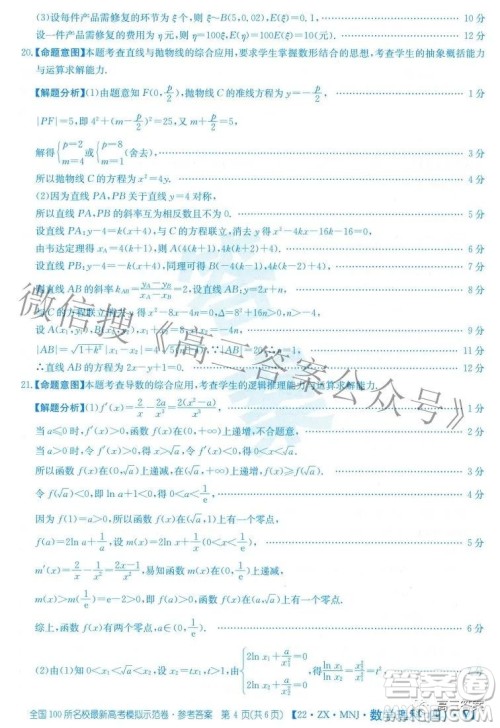 (3)设每件产品需修复的环节为ξ个,则ξ~B(5,0.02),E(ξ)=0.1. 10分
设一件产品需修复的费用为η元,则η=100ξ,E(η)=100E(ξ)=10(元). 12分
20.【命题意图】本题考查直线与抛物线的综合应用,要求学生掌握数形结合的思想,考查学生的抽象概括能力
与运算求解能力.
【解题分析】(1)由题意知F(0,p/2),抛物线C的准线方程为y=-p/2, 1分
|PF|=5,即4²+(m-p/2)²=25,又m+p/2=5,
解得{p=2 m=4或{p=8 m=1(舍去), 3分
所以抛物线C的方程为x²=4y. 4分
(2)因为直线PA,PB关于直线y=4对称,
所以直线PA,PB的斜率互为相反数且不为0. 5分
设直线PA:y-4=k(x+4),与C的方程联立,消去y得x²-4kx-16k-16=0.
由韦达定理得x_A=4(k+1),则A(4(k+1),4k(k+2)+4). 6分
设直线PB:y-4=-k(x+4),同理可得B(-4(k-1),4k(k-2)+4). 7分
直线AB的斜率k_AB=(y_A-y_B)/(x_A-x_B)=2,设直线AB:y=2x+n, 8分
9分
11分
的方程为2x-y+1=0. 12分
21.【命题意图】本题考查导数的综合应用,考查学生的逻辑推理能力与运算求解能力.
【解题分析】(1)f′(x)=2/x-2a/x³=2(x²-a)/x³. 1分
当a≤0时,f′(x)>0,函数f(x)在(0,+∞)上递增,不合题意, 2分
当a>0时,令f′(x)>0,得x>√a,令f′(x)<0,得0<x<√a,
所以函数f(x)在(0,√a)上递减,在(√a,+∞)上递增,所以f(x)≥f(√a). 3分
令f(√a)<0,即ln a+1<0,得0<a<1/e, 4分
因为f(1)=a>0,所以函数f(x)在(√a,1)上有一个零点,
f(a)=2ln a+1/a,设m(x)=2ln x+1/x(0<x<1/e),
m′(x)=2/x-1/x²=(2x-1)/x²,易知函数m(x)在(0,1/e)上递减,
m(x)>m(1/e)=e-2>0,即f(a)>0,所以函数f(x)在(a,√a)上有一个零点.
综上,函数f(x)有两个零点,a∈(0,1/e). 6分
(2)由(1)知0<x₁<√a<x₂,设t=x₂/x₁,由{2ln x₁+a/x₁²=0 2ln x₂+a/x₂²=0
全国100所名校最新高考模拟示范卷·参考答案 第4页(共6页)【22·ZX·MNJ·数学
微信搜《高三答案公众号》